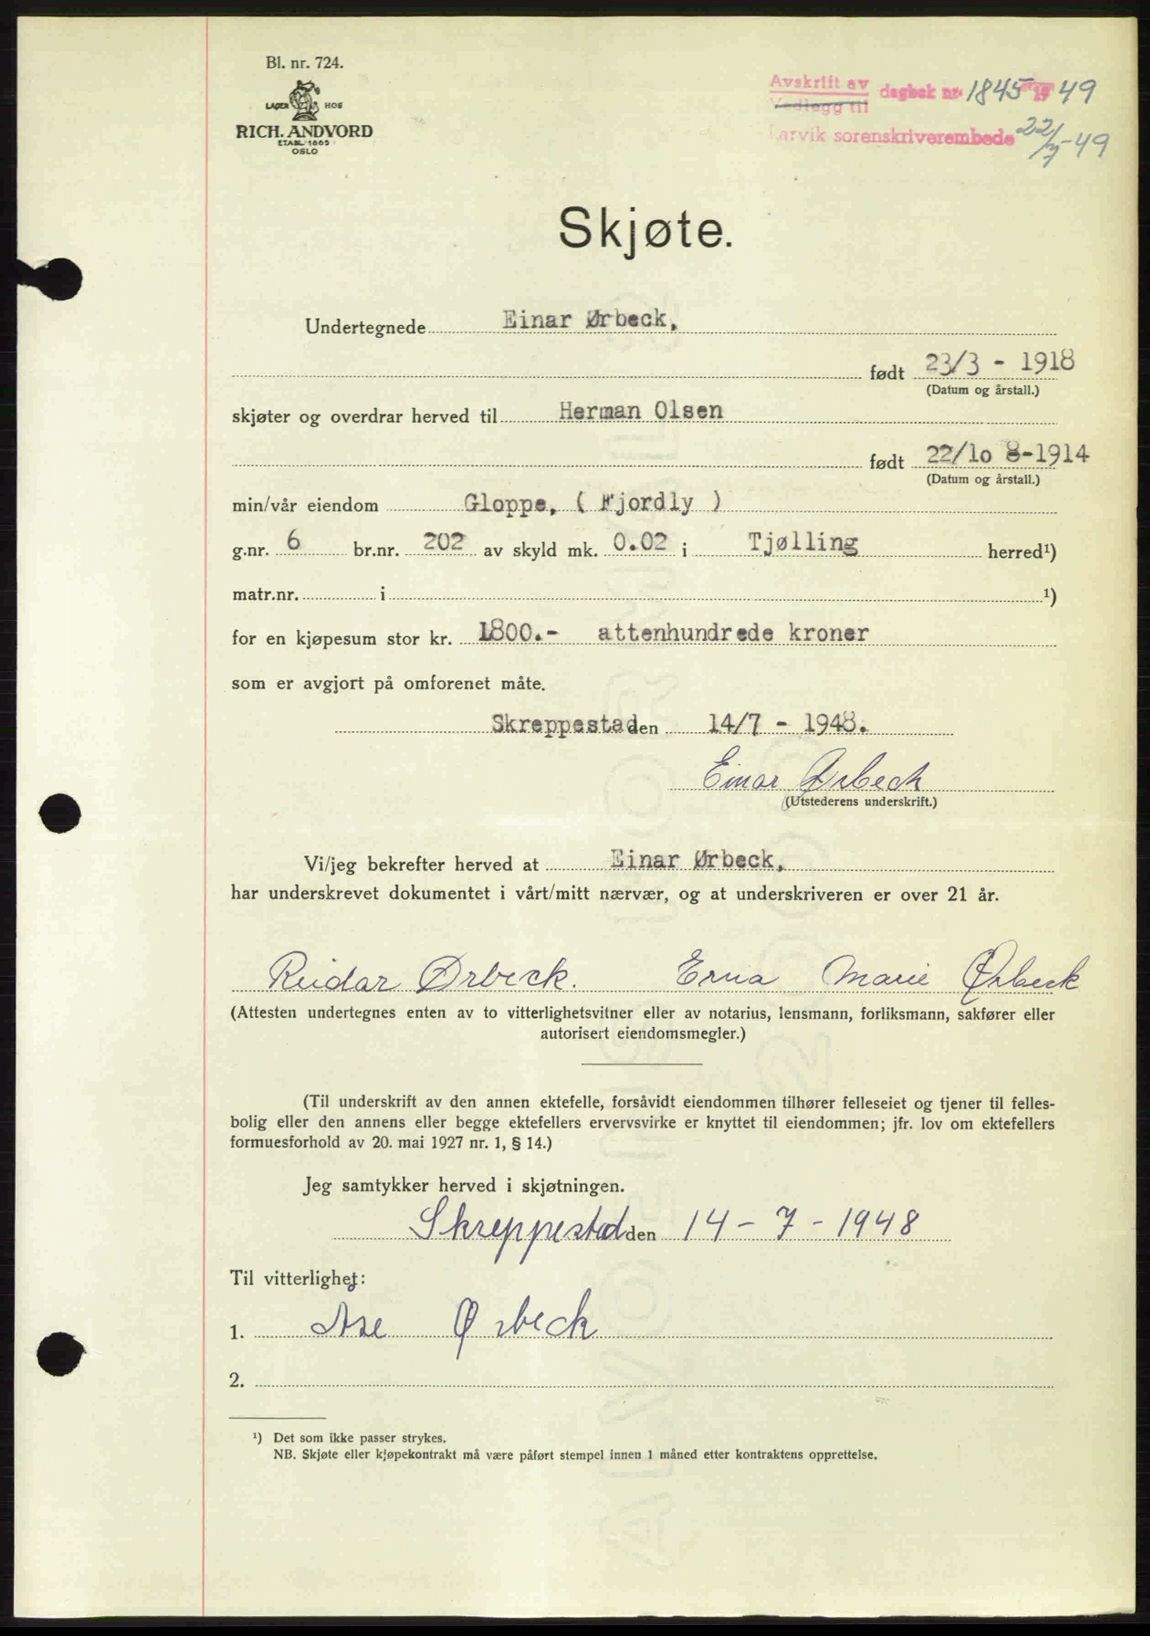 Bl. nr. 724.
LAGER HOS
RICH. ANDVORD
ETABL. 1865
OSLO
Avskrift av
Vedlegg til
dagbok nr. 1845 1949
Larvik sorenskriverembede 22/7-49
Skjøte.
Undertegnede Einar Ørbeck,
født 23/3 - 1918
(Datum og årstall.)
skjøter og overdrar herved til Herman Olsen
født 22/10 8-1914
(Datum og årstall.)
min/vår eiendom Gloppe, ( Fjordly )
g.nr. 6 br.nr. 202 av skyld mk. 0.02 i Tjølling herred¹)
matr.nr. i ¹)
for en kjøpesum stor kr. 1800.- attenhundrede kroner
som er avgjort på omforenet måte.
Skreppestad den 14/7 - 1948.
Einar Ørbeck
(Utstederens underskrift.)
Vi/jeg bekrefter herved at Einar Ørbeck,
har underskrevet dokumentet i vårt/mitt nærvær, og at underskriveren er over 21 år.
Reidar Ørbeck. Erna Marie Ørbeck
(Attesten undertegnes enten av to vitterlighetsvitner eller av notarius, lensmann, forliksmann, sakfører eller
autorisert eiendomsmegler.)
(Til underskrift av den annen ektefelle, forsåvidt eiendommen tilhører felleseiet og tjener til felles-
bolig eller den annens eller begge ektefellers ervervsvirke er knyttet til eiendommen; jfr. lov om ektefellers
formuesforhold av 20. mai 1927 nr. 1, § 14.)
Jeg samtykker herved i skjøtningen.
Skreppestad den 14 - 7 - 1948
Til vitterlighet:
1. Åse Ørbeck
2.
¹) Det som ikke passer strykes.
NB. Skjøte eller kjøpekontrakt må være påført stempel innen 1 måned etter kontraktens opprettelse.